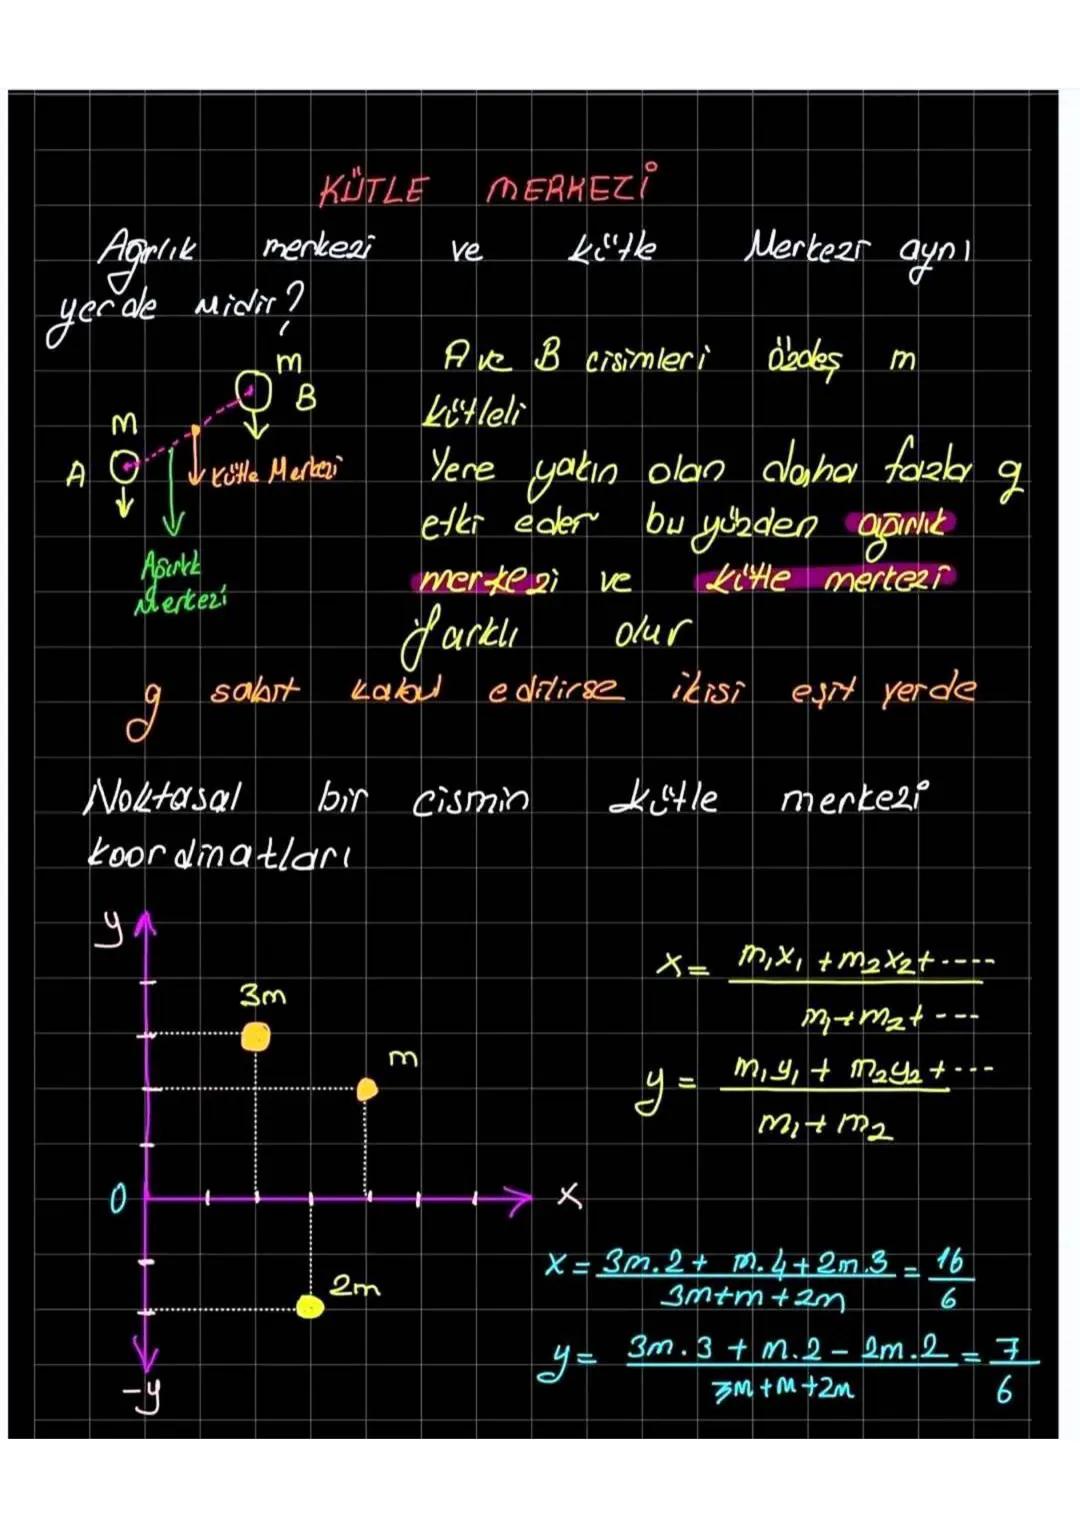 KÜTLE MERKEZİ
Ağırlık merkezi ve kütle Merkezi aynı
yerde midir?
m
B
m
A
Kütle Merkezi
Ağırlık
Merkezi
A ve B cisimleri özdeş m
kütleli
Yere yakın olan daha fazla g
etki eder bu yüzden ağırlık
merkezi ve kütle merkezi
farklı olur
g sabit kabul edilirse ikisi eşit yerde
Noktasal bir cismin kütle merkezi
koordinatları
y
3m
m
0
x
2m
-y
x = m₁x₁ + m₂x₂ + ----
m₁ + m₂ + ---
y = m₁y₁ + m₂y₂ + ---
m₁ + m₂
x = 3m.2 + m.4 + 2m.3 = 16
3m + m + 2m 6
y = 3m.3 + m.2 - 2m.2 = 7
3m + m + 2m 6